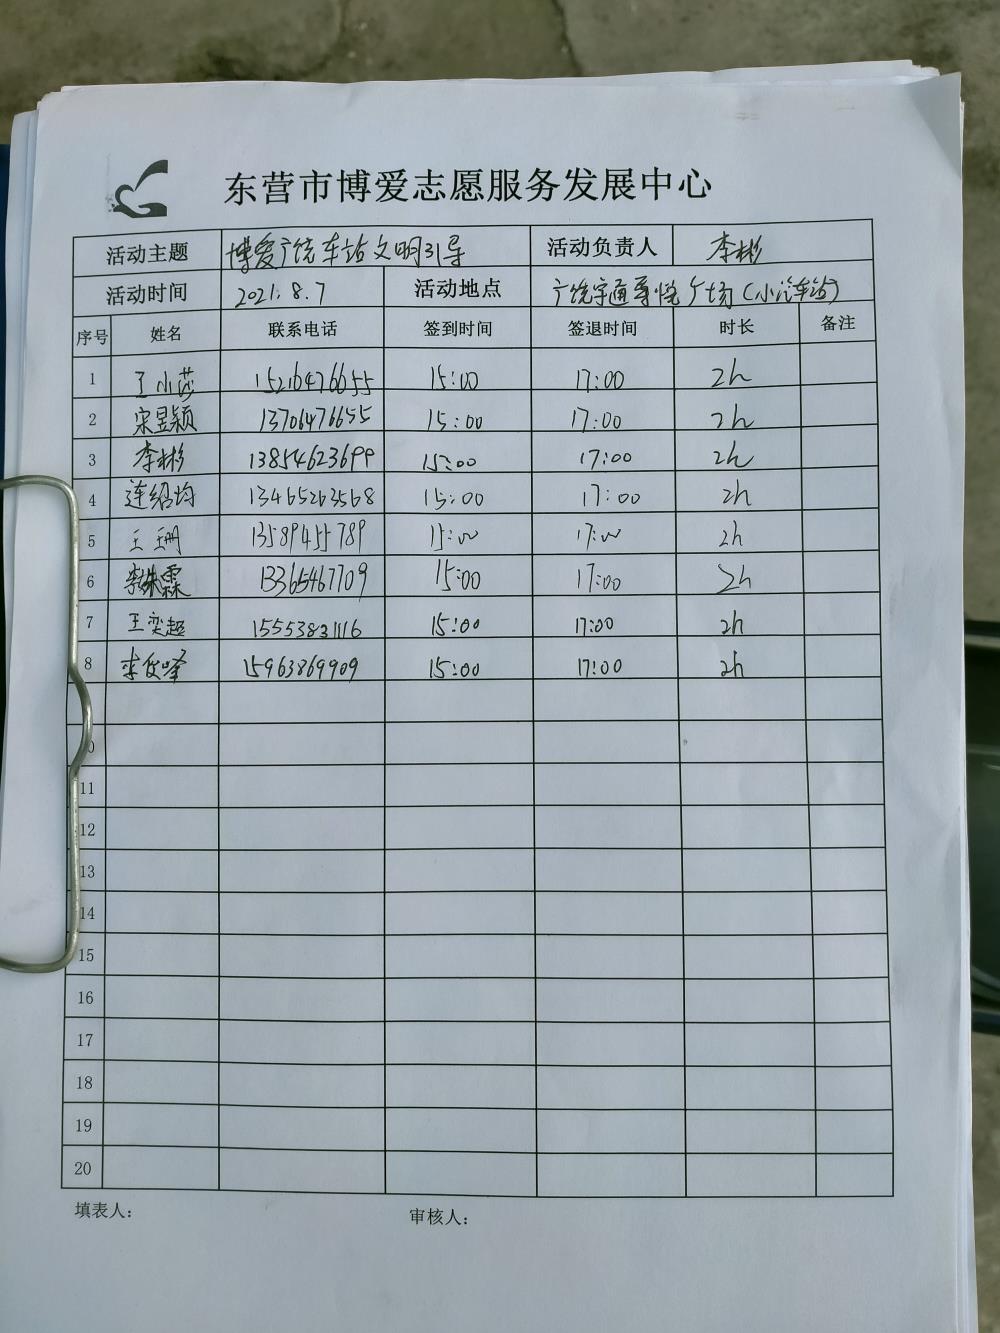 东营市博爱志愿服务发展中心
活动主题 博爱广饶车站文明引导 活动负责人 李彬
活动时间 2021.8.7 活动地点 广饶宇通尊悦广场(小汽车站)
序号 姓名 联系电话 签到时间 签退时间 时长 备注
1 丁小莎 15216476655 15:00 17:00 2h
2 宋昱颖 13706476655 15:00 17:00 2h
3 李彬 13854623699 15:00 17:00 2h
4 连绍均 13465263568 15:00 17:00 2h
5 王珊 13589455789 15:00 17:00 2h
6 13365467709 15:00 17:00 2h
7 王奕超 15553831116 15:00 17:00 2h
8 李俊峰 15963869909 15:00 17:00 2h
11
12
13
14
15
16
17
18
19
20
填表人: 审核人: